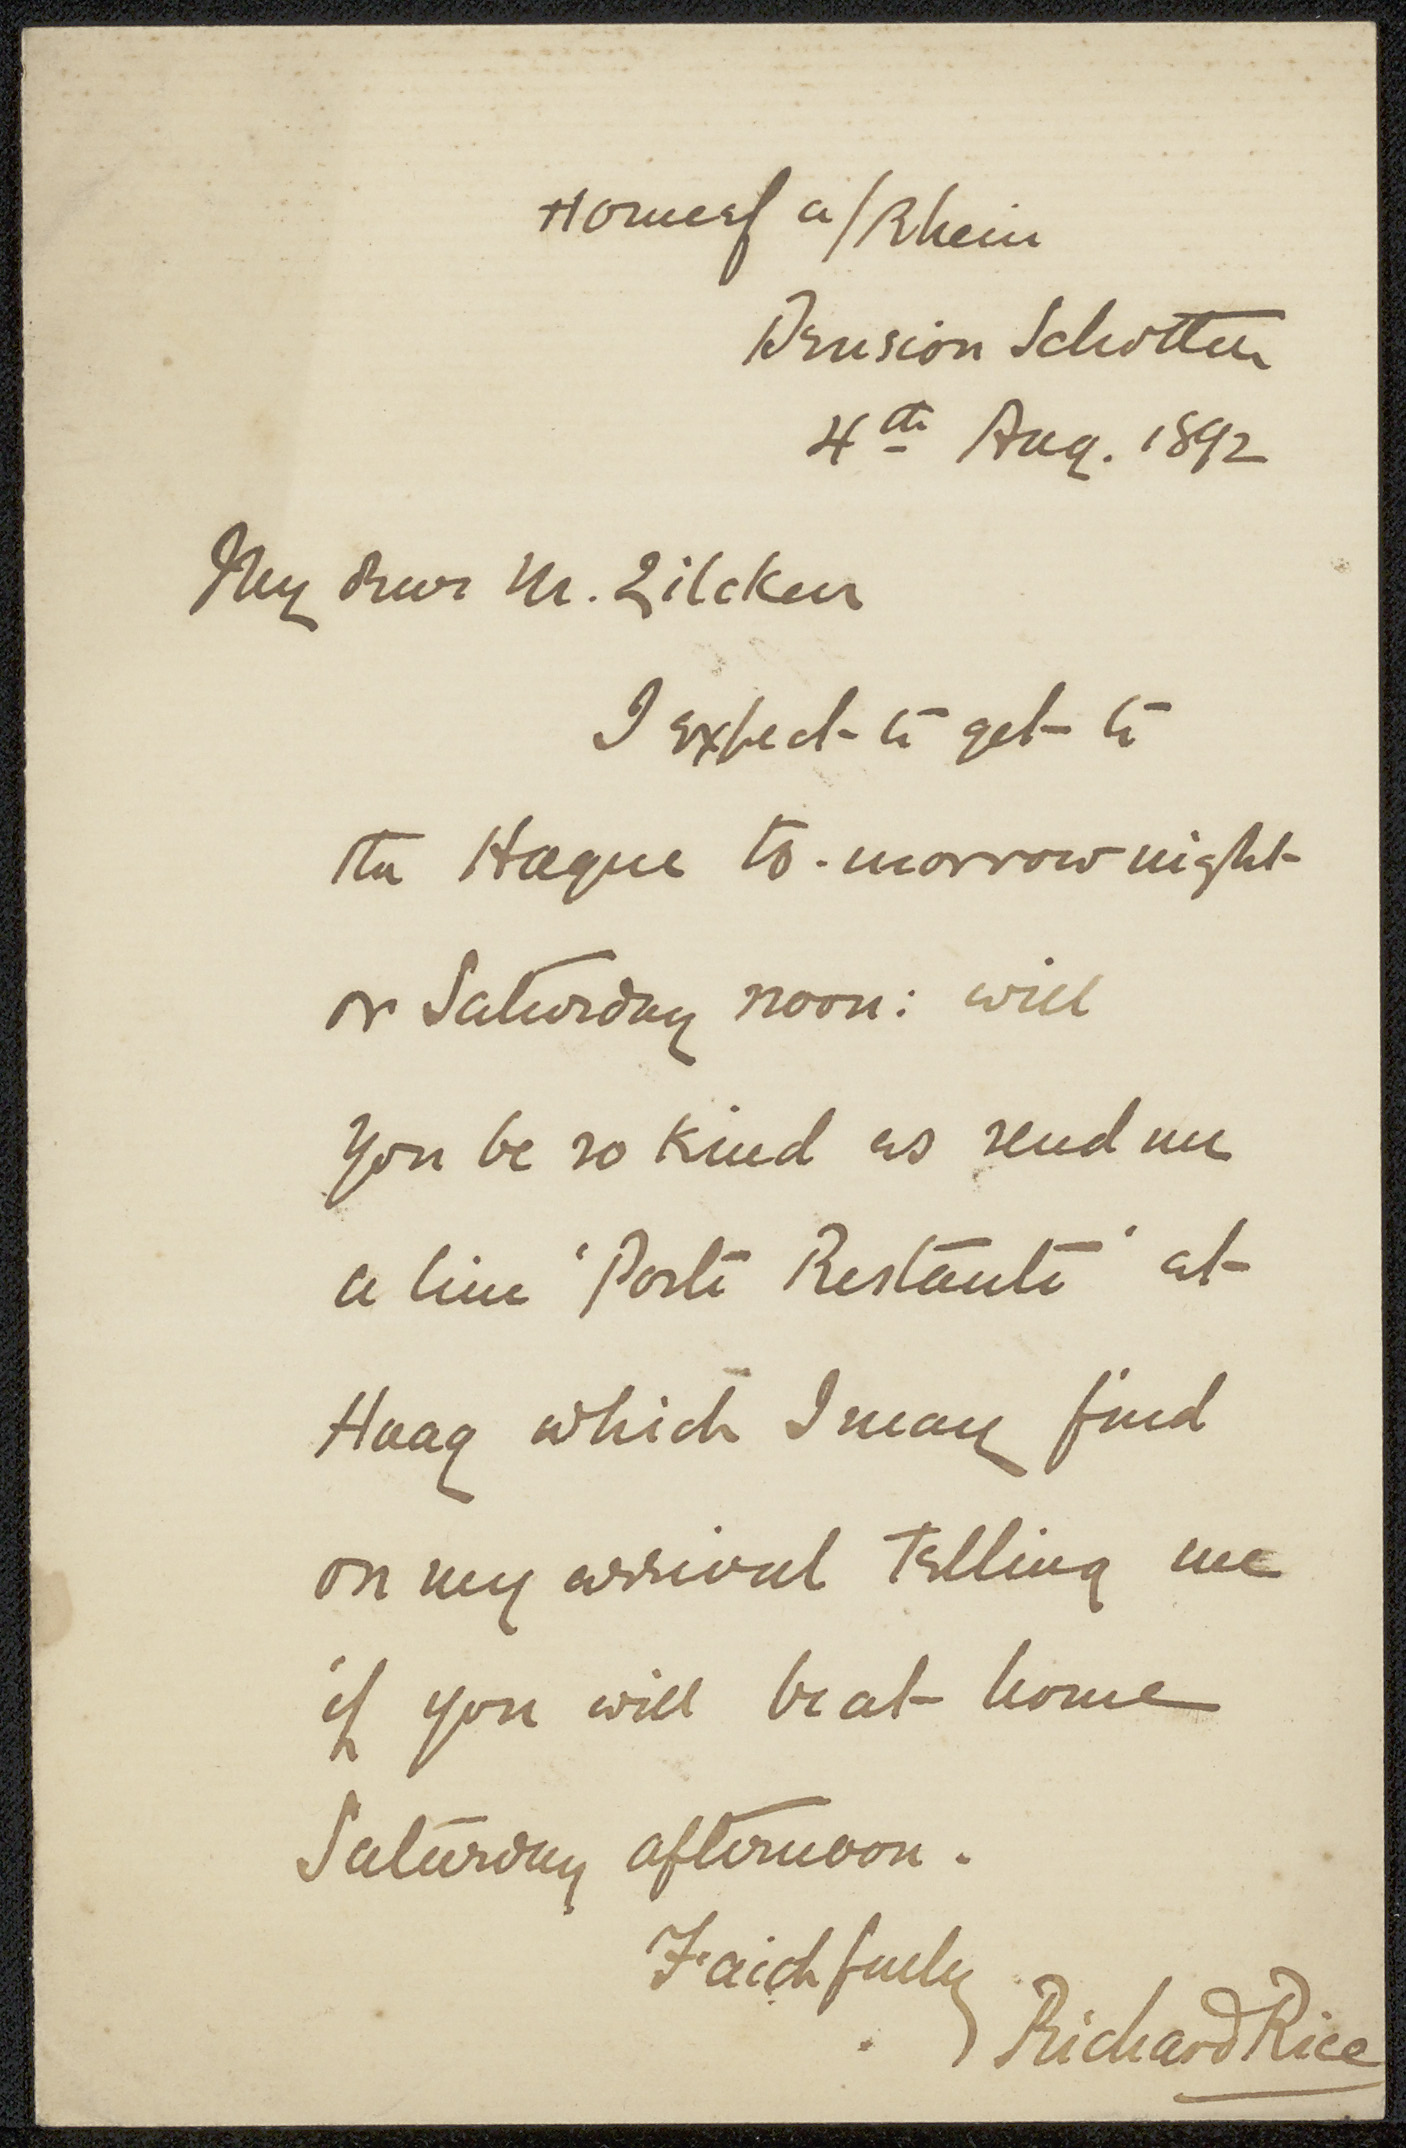 Honnef a/Rhein
Pension Schotten
4th Aug. 1892
My dear Mr. Zilcken
I expect to get to
the Hague to-morrow night
or Saturday noon: will
you be so kind as send me
a line 'Poste Restante' at
Haag which I may find
on my arrival telling me
if you will be at home
Saturday afternoon.
Faithfully
Richard Rice